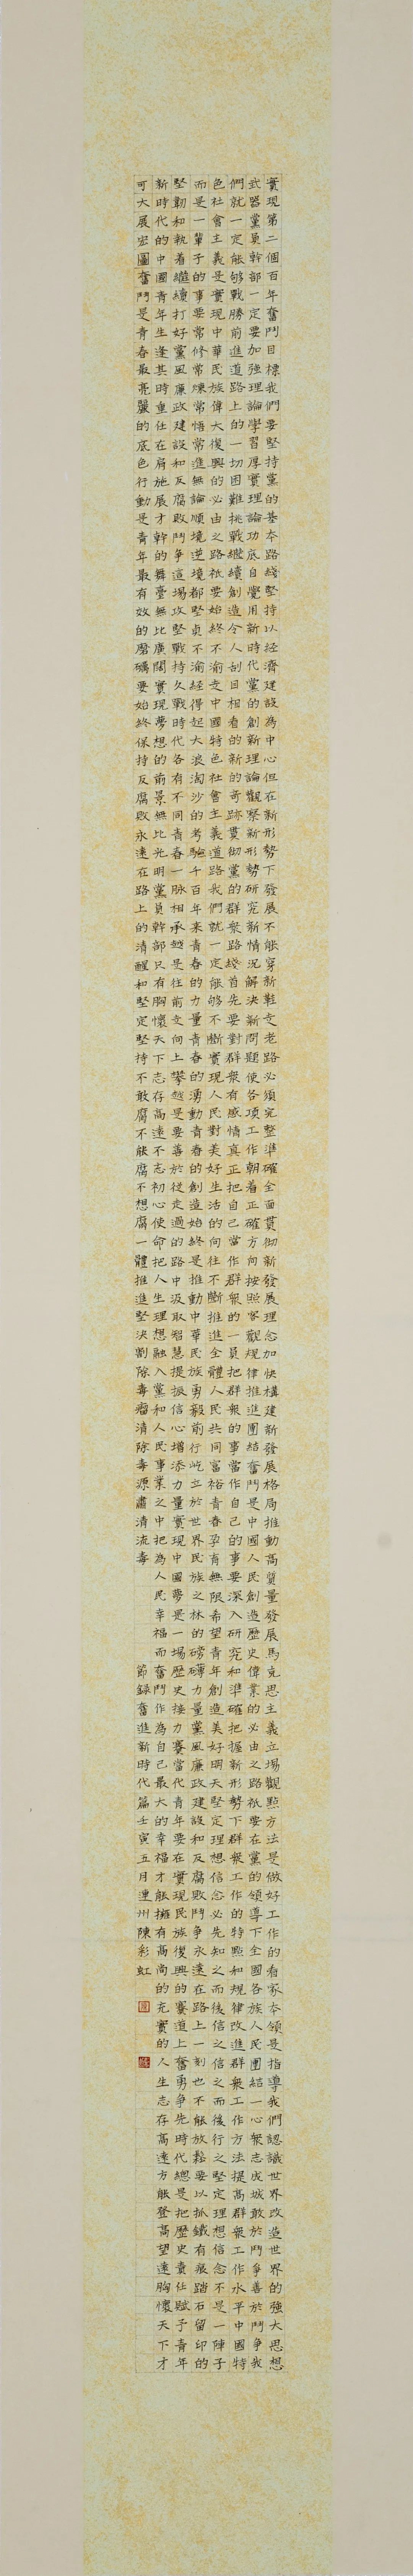 實現第二個百年奮鬥目標我們要堅持黨的基本路綫堅持以經濟建設為中心但在新形勢下發展不能穿新鞋走老路必須完整準確全面貫彻新發展理念加快構建新發展格局推動高質量發展馬克思主義立場觀點方法是做好工作的看家本領是指導我們認識世界改造世界的強大思想
武器黨員幹部一定要加強理論學習厚實理論功底自覺用新時代黨的創新理論觀察新形勢研究新情況解決新問題使各項工作朝着正確方向按照客觀規律推進團結奮鬥是中國人民創造歷史偉業的必由之路祇要在黨的領導下全國各族人民團結一心衆志成城敢於鬥爭善於鬥爭我
們就一定能够戰勝前進道路上的一切困難挑戰繼續創造令人刮目相看的新的奇跡貫彻黨的群衆路綫首先要對群衆有感情真正把自己當作群衆的一員把群衆的事當作自己的事要深入研究和準確把握新形勢下群衆工作的特點和規律改進群衆工作方法提高群衆工作水平中國特
色社會主義是實現中華民族偉大復興的必由之路祇要始終不渝走中國特色社會主義道路我們就一定能够不斷實現人民對美好生活的向往不斷推進全體人民共同富裕青春孕育無限希望青年創造美好明天堅定理想信念必先知之而後信之信之而後行之堅定理想信念不是一陣子
而是一輩子的事要常修常煉常悟常進無論順境逆境都堅貞不渝經得起大浪淘沙的考驗千百年来青春的力量青春的湧動青春的創造始終是推動中華民族勇毅前行屹立於世界民族之林的磅礴力量黨風廉政建設和反腐敗鬥争永遠在路上一刻也不能放鬆要以抓鐵有痕踏石留印的
堅韌和執着繼續打好黨風廉政建設和反腐敗鬥争這場攻堅戰持久戰時代各有不同青春一脉相承越是往前走向上攀越是要善於從走過的路中汲取智慧提振信心增添力量實現中國夢是一場歷史接力賽當代青年要在實現民族復興的賽道上奮勇争先時代總是把歷史責任賦予青年
新時代的中國青年生逢其時重任在肩施展才幹的舞臺無比廣闊實現夢想的前景無比光明黨員幹部只有胸懷天下志存高遠不忘初心使命把人生理想融入黨和人民事業之中把為人民幸福而奮鬥作為自己最大的幸福才能擁有高尚的充實的人生志存高遠方能登高望遠胸懷天下才
可大展宏圖奮鬥是青春最亮麗的底色行動是青年最有效的磨礪要始終保持反腐敗永遠在路上的清醒和堅定堅持不敢腐不能腐不想腐一體推進堅決剷除毒瘤清除毒源肅清流毒
節録奮進新時代篇壬寅五月連州陳彩虹